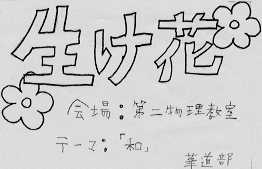 生け花
会場：第二物理教室
テーマ：「和」
華道部